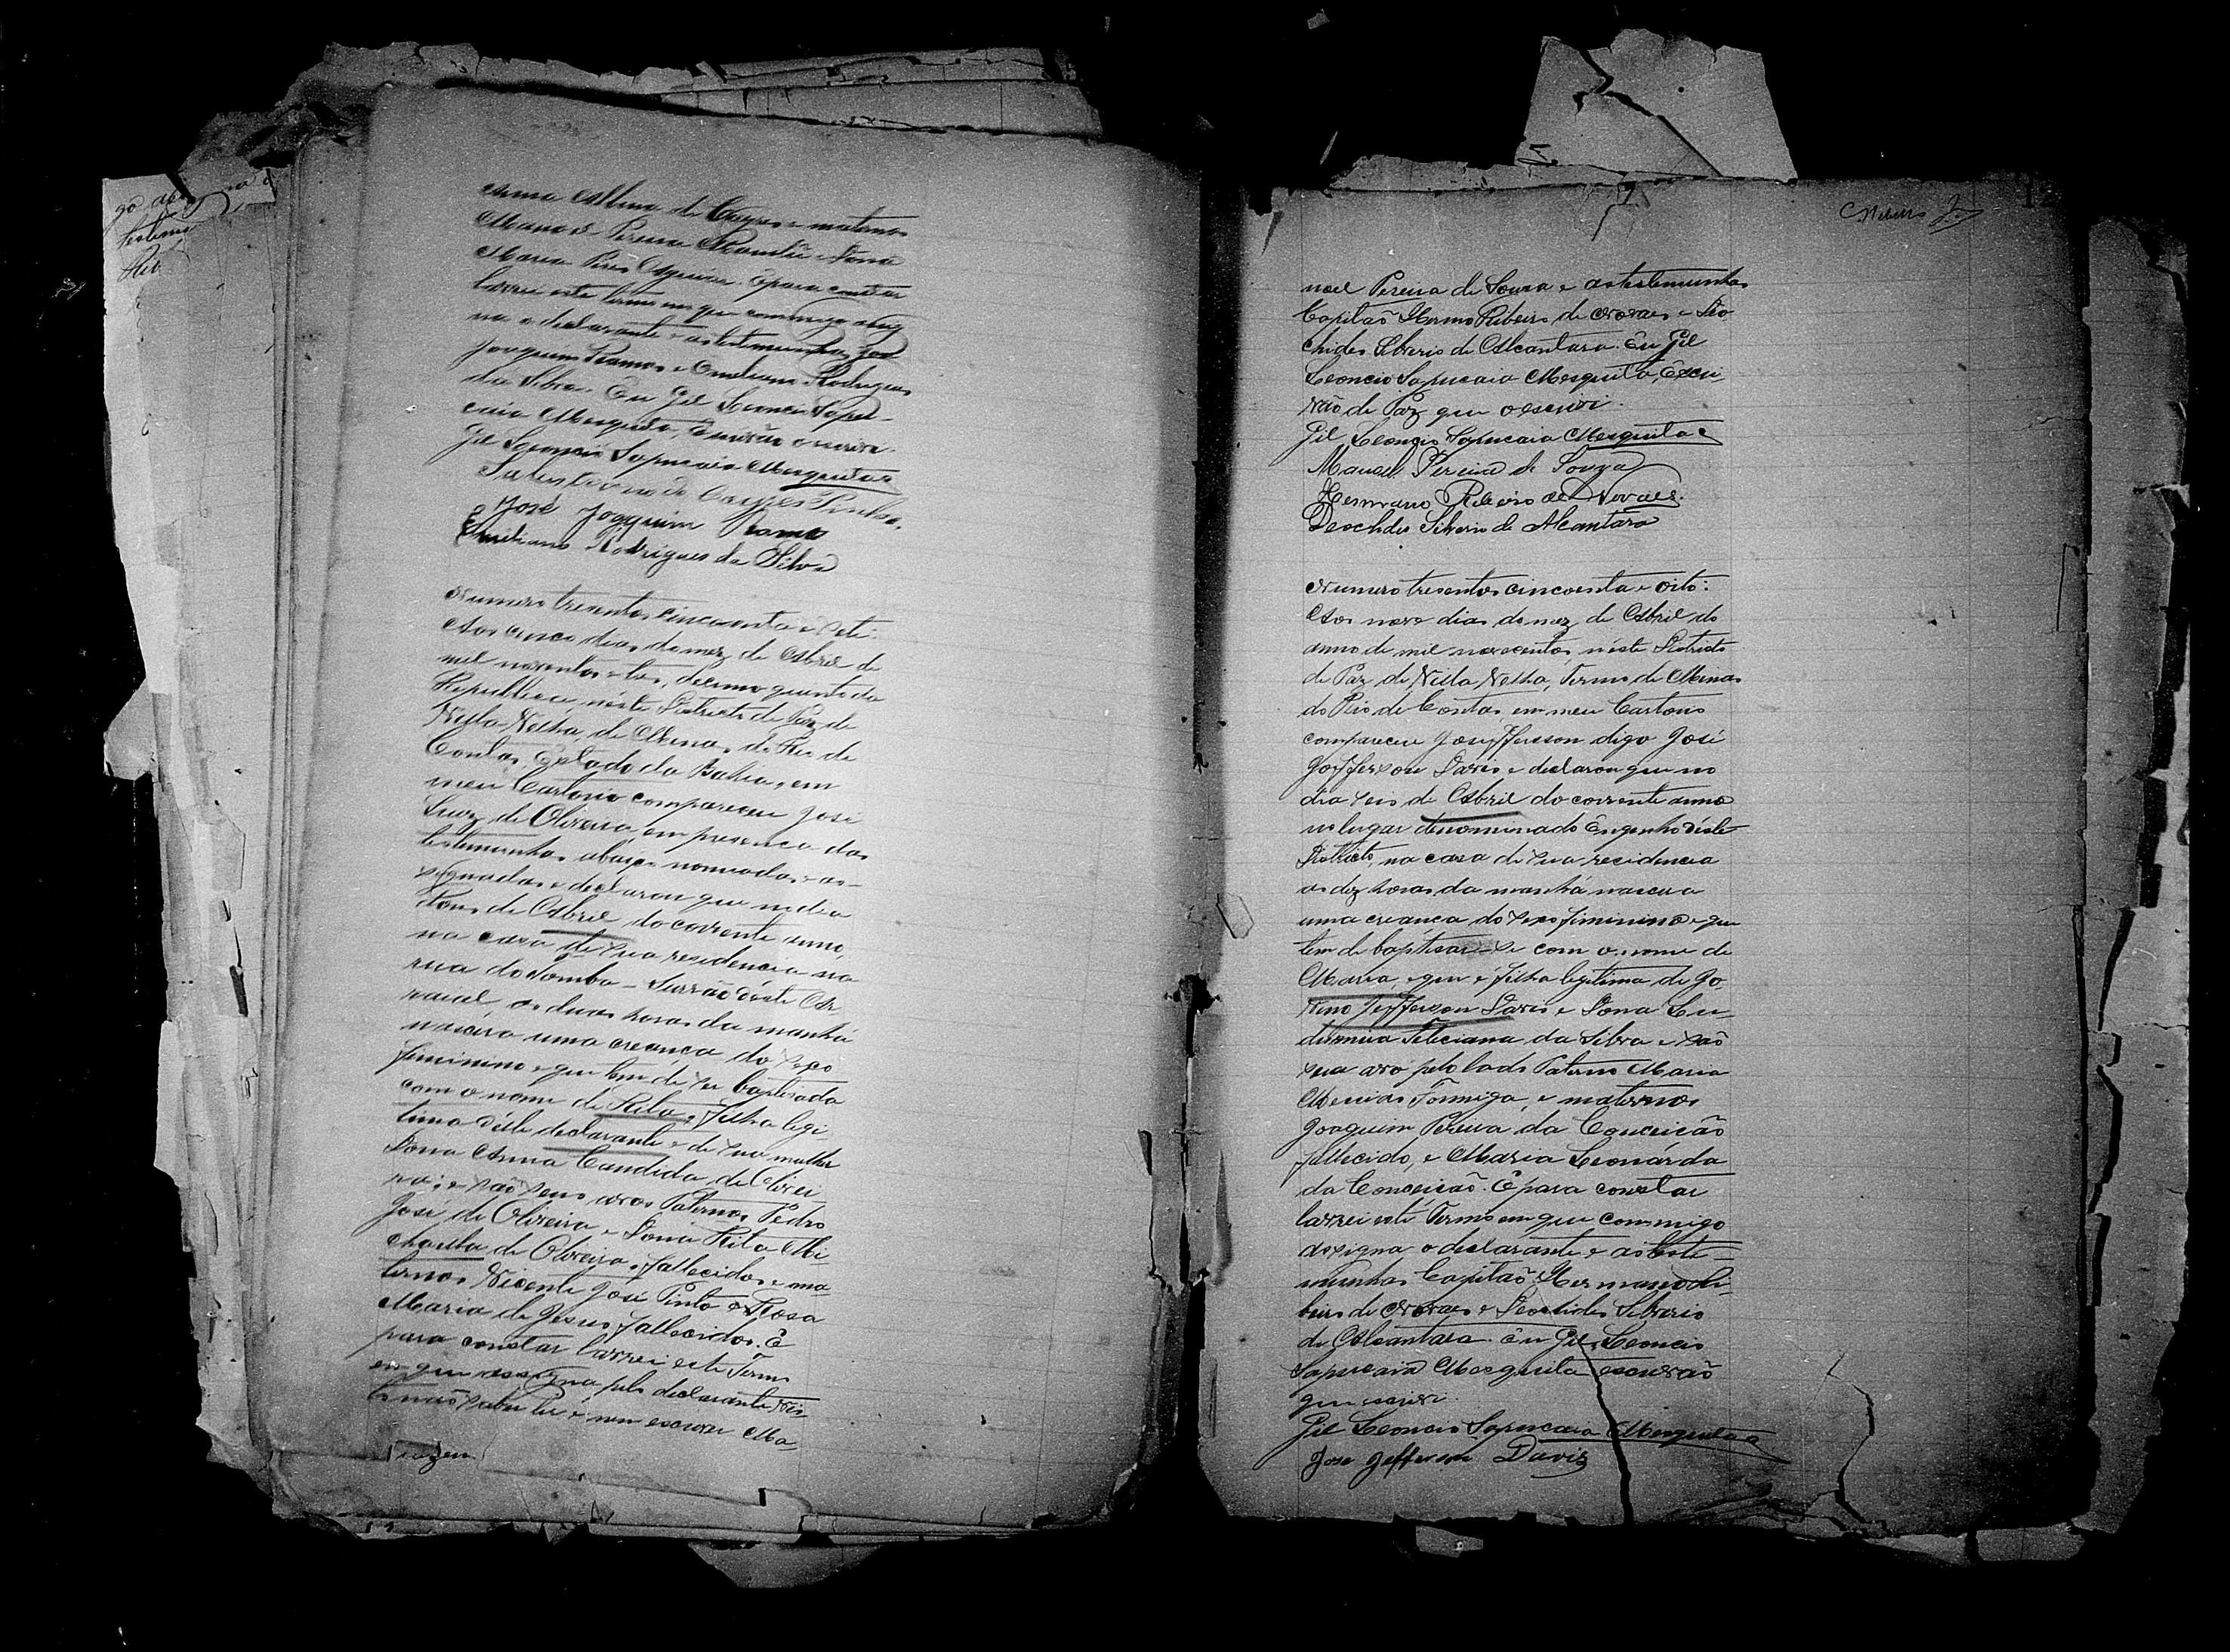 go de
Anna Albina de Cayres e maternos
Manoel Pereira e Dona
Maria Pires E para constar
lavrei este termo em que commigo assig
na o declarante e as testemunhas José
Joaquim Ramos e Emiliano Rodrigues
da Silva. Eu Gil Leoncio Sapu-
caia Mesquita, Escrivão o escrevi.
Gil Leoncio Sapucaia Mesquita
Cayres Pinho.
José Joaquim Ramos
Emiliano Rodrigues da Silva
Numero tresentos cincoenta e sete
Aos cinco dias do mez de Abril de
mil novecentos e tres, decimo quinto da
Republica, néste Districto de Paz de
Villa Velha, de Minas do Rio de
Contas, Estado da Bahia, em
meu Cartorio compareceu José
Luiz de Oliveira, em presença das
testemunhas abaixo nomeadas e as-
signadas e declarou que no dia
dous de Abril do corrente anno,
na casa de sua residencia na
rua do Tomba-Surrão déste Ar
raial, as duas horas da manhã
nascêra uma creança do sexo
feminino e que tem de ser baptisada
com o nome de Rita, filha legi
tima délle declarante e de sua mulher
Dona Anna Candida de Olivei
ra; e são seus avos Paternos Pedro
José de Oliveira e Dona Rita Mi
chaella de Oliveira, fallecidos e ma
ternos Vicente José Pinto e Rosa
Maria de Jesus, fallecidos. E
para constar lavrei este Termo
em que assigna pelo declarante vis-
to não saber ler e nem escrever Ma-
noel Pereira de Souza e as testemunhas
Capitão Hermano Ribeiro de Novaes e Deo
clides Silverio de Alcantara. Eu Gil
Leoncio Sapucaia Mesquita, Escri-
vão de Paz que o escrivi.
Gil Leoncio Sapucaia Mesquita
Manoel Pereira de Souza
Hermano Ribeiro de Novaes.
Deoclides Silverio de Alcantara
Numero tresentos cincoenta e oito:
Aos nove dias do mez de Abril do
anno de mil novecentos, néste Districto
de Paz de Villa Velha, Termo de Minas
do Rio de Contas em meu Cartorio
compareceu Joseffersson digo José
Jofferson Davis e declarou que no
dia seis de Abril do corrente anno
no lugar denominado Engenho déste
Districto, na casa de sua recidencia
as dez horas da manhã nasceu a
uma creança do sexo feminino e que
tem de baptisar-se com o nome de
Maria, e que é filha legitima de Jo
vino Jefferson Davis e Dona Eu
dusmira Feliciana da Silva e são
sua avó pelo lado Paterno Maria
Mecias Formiga, e maternos
Joaquim Pereira da Conceicão
fallecido, e Maria Leonarda
da Conceicaõ. E para constar
lavrei este Termo em que commigo
assigna o declarante e as teste-
munhas Capitaõ Hermano Ri-
beiro de Novaes e Deoclides Silverio
de Alcantara. Eu Gil Leoncio
Sapucaia Mesquita escrivaõ
que escrivi.
Gil Leoncio Sapucaia Mesquita
Jose Jefferson Davis